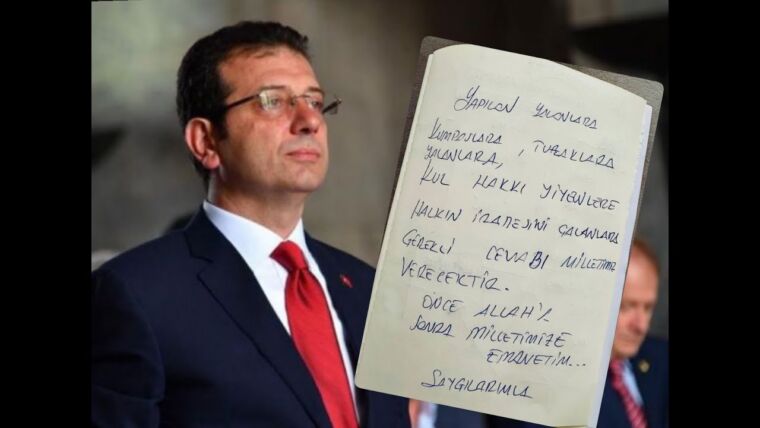 YAPILAN YALANLARA
KUMPASLARA, TUZAKLARA
YALANLARA,
KUL HAKKI YİYENLERE
HALKIN İRADESİNİ ÇALANLARA
GEREKLİ CEVABI MİLLETİMİZ
VERECEKTİR.
ÖNCE ALLAH'A
SONRA MİLLETİMİZE
EMANETİM...
SAYGILARIMLA